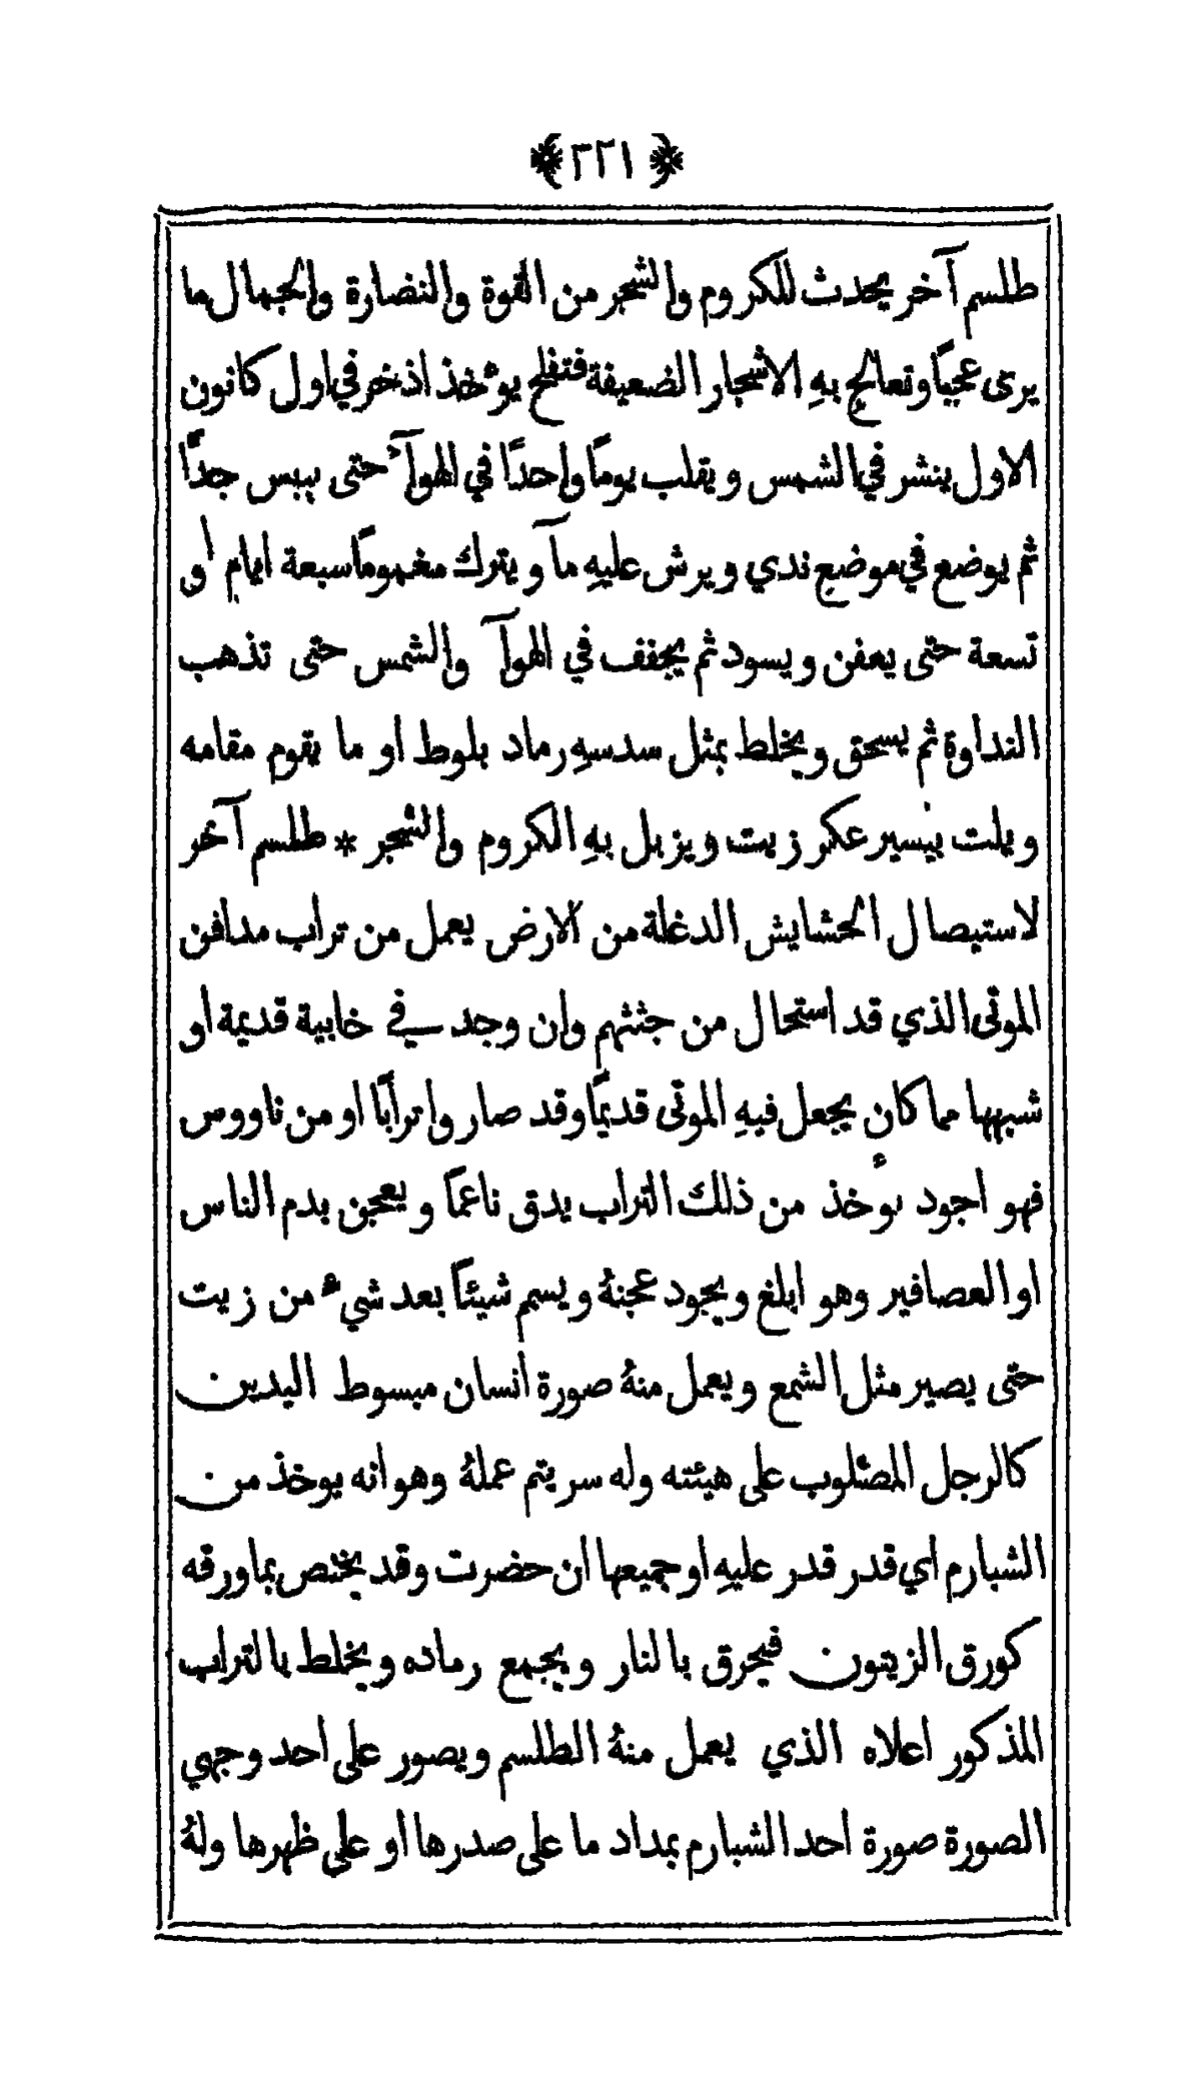 ﴿ ٢٢١ ﴾
طلسم آخر يحدث للكروم والشجر من القوة والنضارة والجمال ما
يرى عجيبًا وتعالج بهِ الاشجار الضعيفة فتفلح يوٴخذ اذخر في اول كانون
الاول ينشر في الشمس ويقلب يومًا واحدًا في الهوآء حتى ييبس جدًا
ثم يوضع في موضع ندي ويرش عليهِ مآ ويترك مغمومًا سبعة ايام او
تسعة حتى يعفن ويسود ثم يجفف في الهوآ والشمس حتى تذهب
النداوة ثم يسحق ويخلط بمثل سدسهِ رماد بلوط او ما يقوم مقامه
ويلت بيسير عكر زيت ويزبل بهِ الكروم والشجر * طلسم آخر
لاستيصال الحشايش الدغلة من الارض يعمل من تراب مدافن
الموتى الذي قد استحال من جثثهم وان وجد في خابية قديمة او
شبهها مما كان يجعل فيهِ الموتى قديمًا وقد صاروا ترابًا او من ناووس
فهو اجود يوٴخذ من ذلك التراب يدق ناعمًا ويعجن بدم الناس
او العصافير وهو ابلغ ويجود عجنهُ ويسم شيئًا بعد شيء من زيت
حتى يصير مثل الشمع ويعمل منهُ صورة انسان مبسوط اليدين
كالرجل المصلوب على هيئته وله سر يتم عملهُ وهو انه يوخذ من
الشبارم اي قدر قدر عليهِ او جميعها ان حضرت وقد يختص بما ورقه
كورق الزيتون فيحرق بالنار ويجمع رماده ويخلط بالتراب
المذكور اعلاه الذي يعمل منهُ الطلسم ويصور على احد وجهي
الصورة صورة احد الشبارم بمداد ما على صدرها او على ظهرها ولهُ